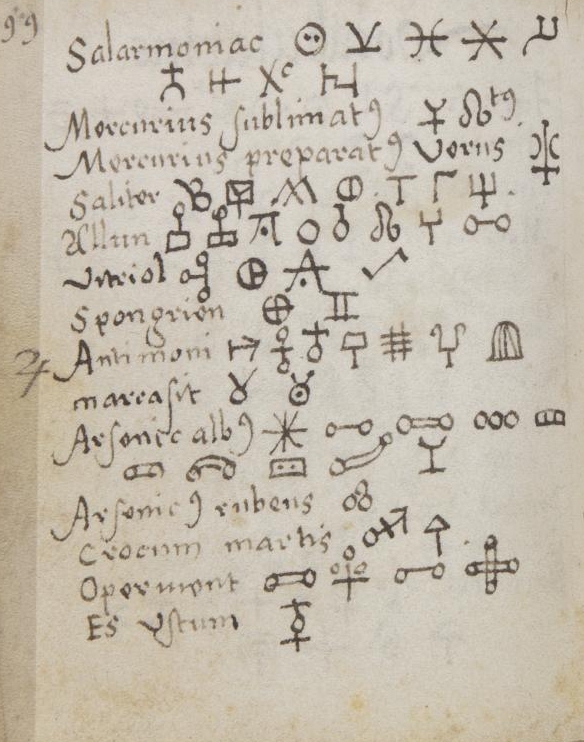 99
Salarmoniac
Mercurius sublimatꝰ
Mercurius preparatꝰ Verus
Saliter
Allun
Vitriol
Spongrien
Antimoni
marcasit
Arsenic albꝰ
Arsenicꝰ rubens
Crocum martis
Operment
Es Vstum